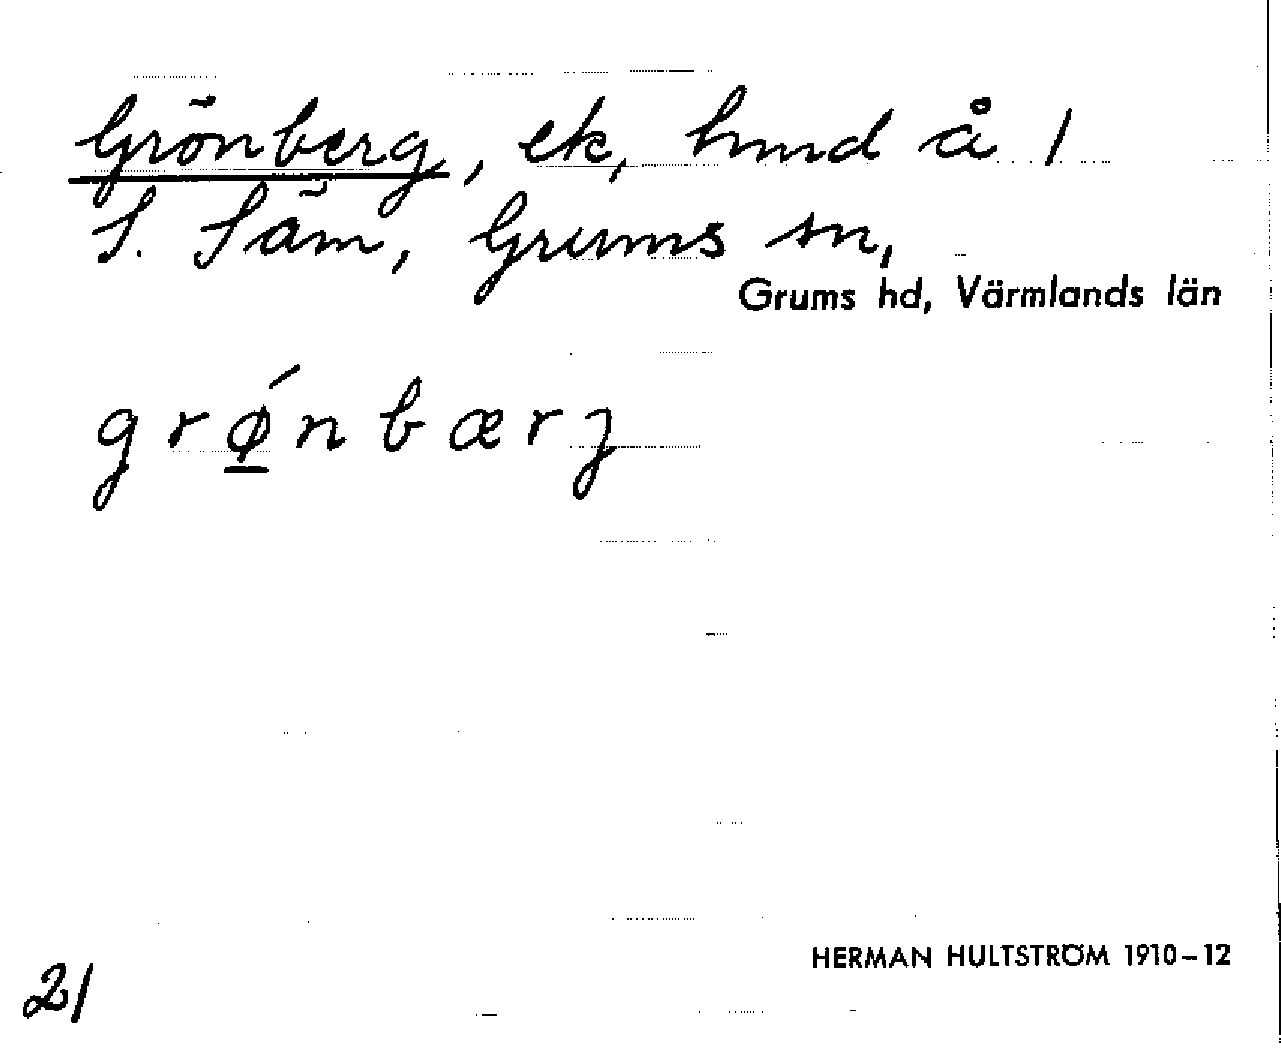 Grönberg, ek, hmd å 1
S. Säm, Grums sn,
Grums hd, Värmlands län
grǿnbærj
HERMAN HULTSTRÖM 1910-12
21